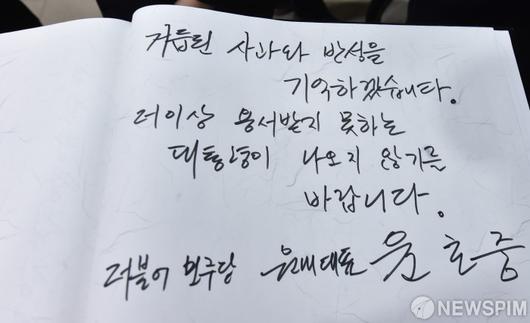 거듭된 사과와 반성을
기억하겠습니다.
더이상 용서받지 못하는
대통령이 나오지 않기를
바랍니다.
더불어 민주당 원내대표 윤호중
NEWSPIM